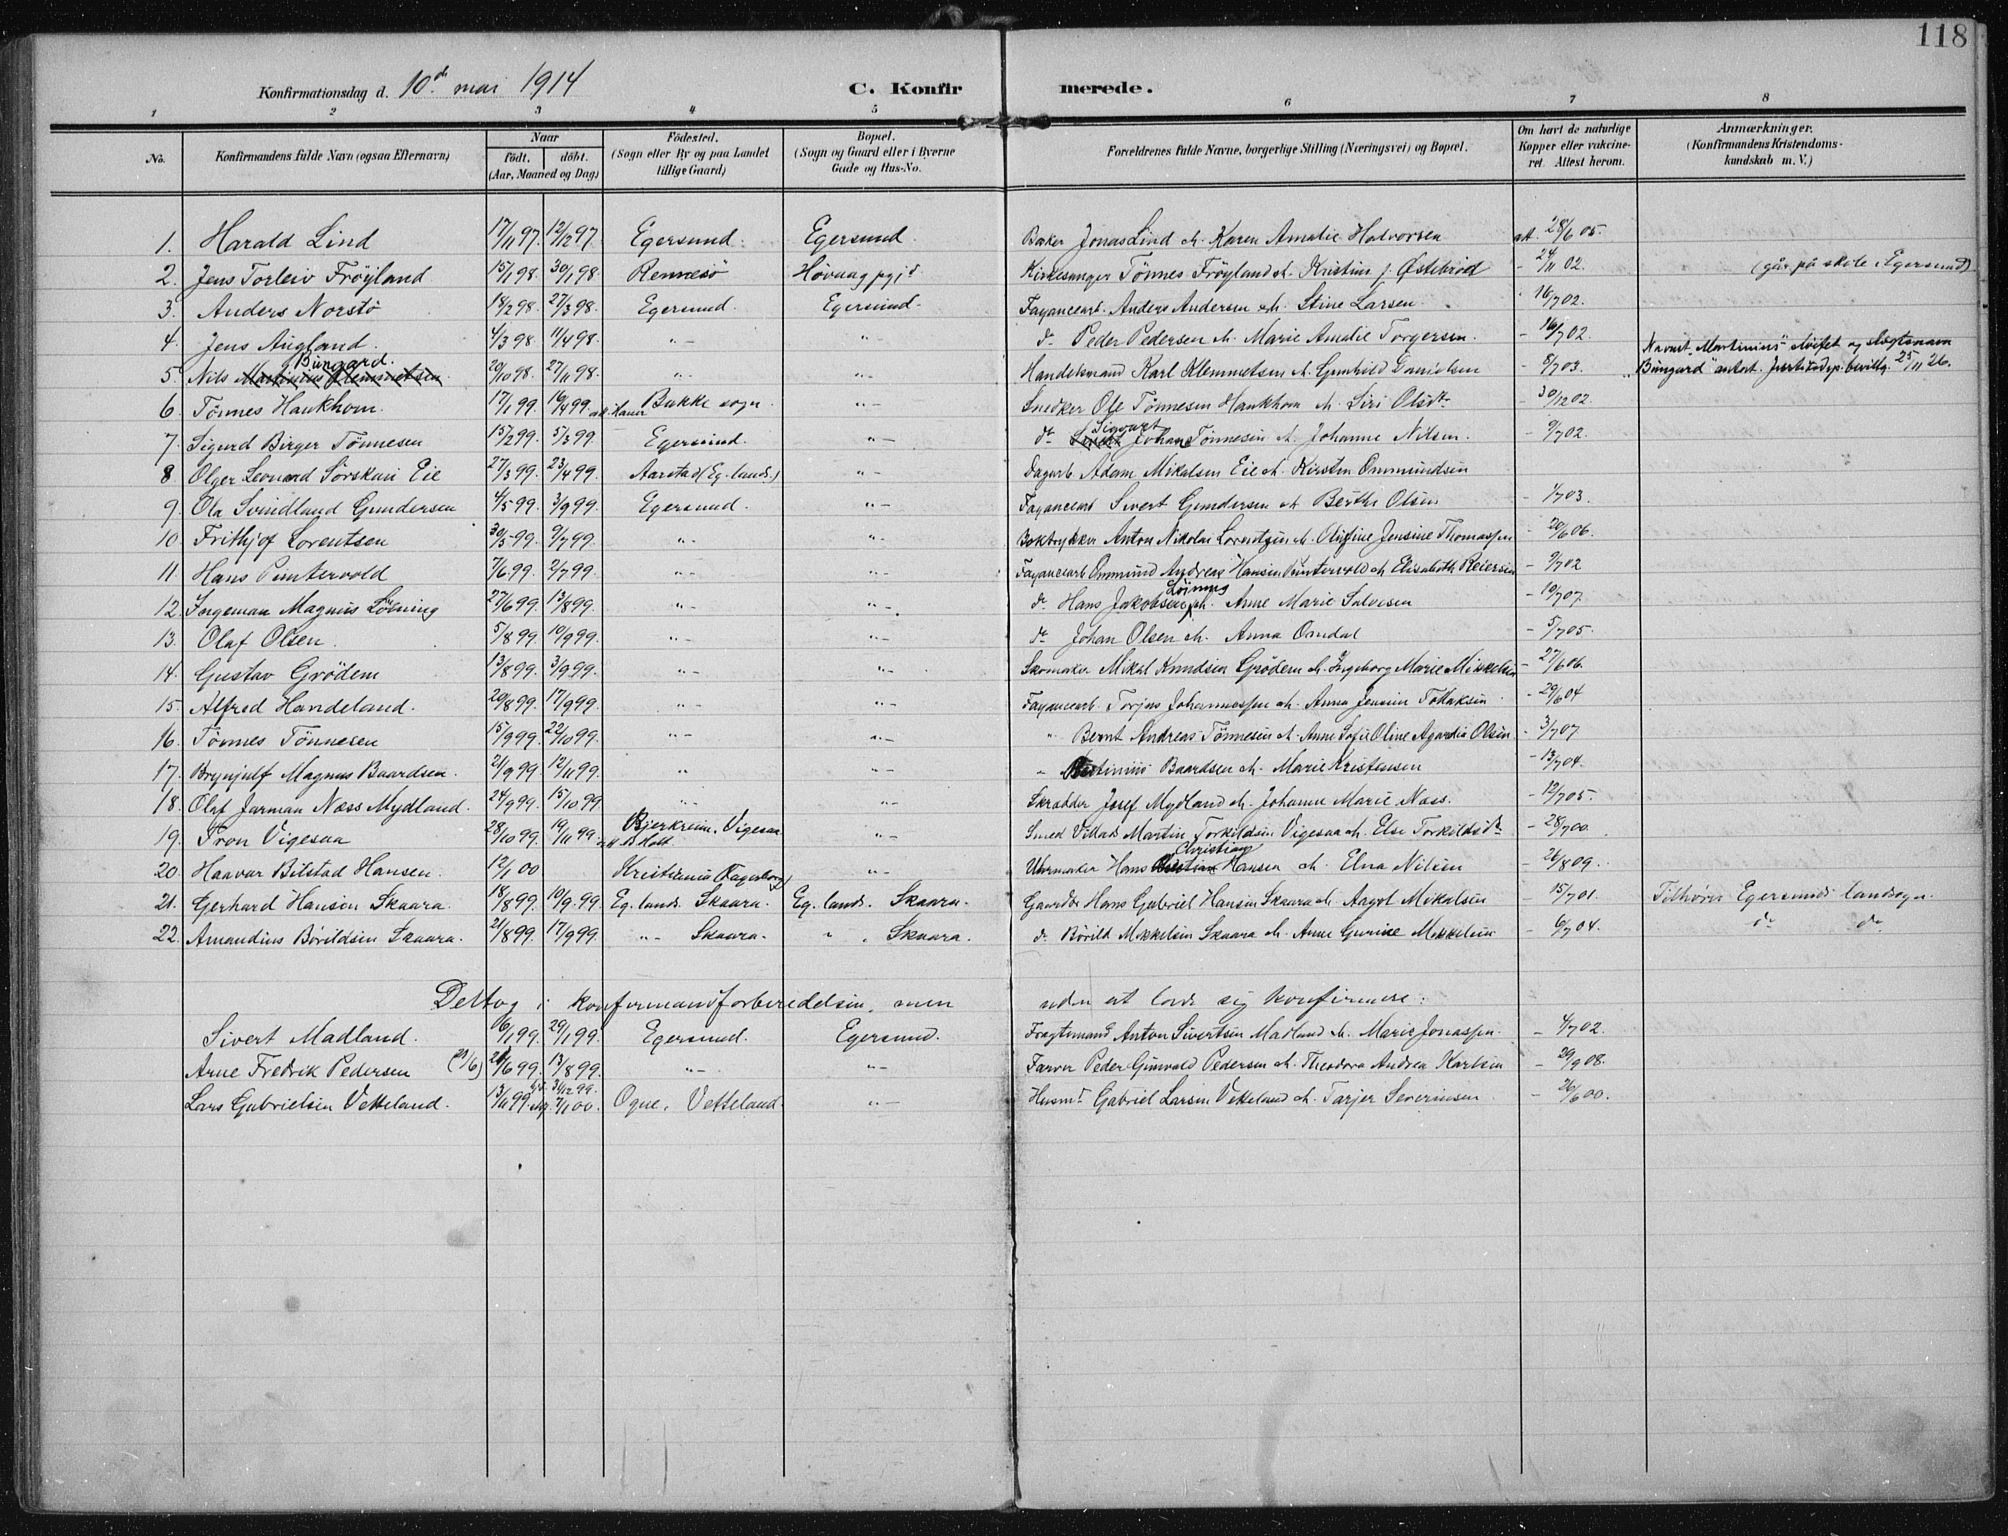 118
Konfirmationsdag d. 10de mai 1914 C. Konfirmerede.
1 2 3 4 5 6 7 8
No. Konfirmandens fulde Navn (ogsaa Efternavn) Naar födt. döbt. (Aar, Maaned og Dag) Födested. (Sogn eller By og paa Landet tillige Gaard) Bopæl. (Sogn og Gaard eller i Byerne Gade og Hus-No. Forældrenes fulde Navne, borgerlige Stilling (Næringsvei) og Bopæl. Om havt de naturlige Kopper eller vakcineret. Attest herom. Anmærkninger. (Konfirmandens Kristendomskundskab m. V.)
1. Harald Lind 17/11 97. 12/12 97. Egersund. Egersund. Baker Jonas Lind & h. Karen Amalie Halvorsen att. 28/6 05.
2. Jens Torleiv Fröyland 15/1 98. 30/1 98. Rennesö Høvaag pgjd Kirkesanger Tönnes Fröyland & h. Kristine f. Østebröd - 24/11 02. (går på skole i Egersund)
3. Anders Norstö 18/2 98. 27/3 98. Egersund. Egersund. Fayancearb. Anders Andersen & h. Stine Larsen - 16/7 02.
4. Jens Augland. 4/3 98. 11/4 98. -"- -"- do Peder Pedersen & h. Marie Amalie Torgersen. - 16/7 02.
5. Nils Martinius Klemmetsen. Bungard. 20/10 98. 27/11 98. -"- -"- Handelsmand Karl Klemmetsen & h. Gunhild Danielsen - 8/7 03. Navnet "Martinius" sløifet og slegtsnavn "Bungard" antat. Justisdep. bevillg. 25/11 26.
6. Tönnes Haukhom. 17/1 99. 16/4 99. Bakke sogn -"- Snedker Ole Tönnesen Haukhom & h. Siri Olsdtr - 30/12 02.
7. Sigurd Birger Tönnesen 15/2 99. 5/3 99. Egersund. -"- do Sigvart Johan Tönnesen & h. Johanne Nilsen. - 9/7 02.
8 Olger Leonard Sörskaar Eie 27/3 99. 23/4 99. Aarstad (Eg. lands.) -"- Dagarb. Adam Mikalsen Eie & h. Kirsten Ommundsen
9. Ola Svindland Gundersen 4/5 99. 3/9 99. Egersund. -"- Fayancearb Sivert Gundersen & h. Berthe Olsen - 1/7 03.
10. Frithjof Lorentsen 30/5 99. 9/7 99. -"- -"- Boktrykker Anton Nikolai Lorentzen & h. Olufine Jensine Thomassen - 20/6 06.
11. Hans Puntervold 7/6 99. 2/7 99. -"- -"- Fayancearb Ommund Andreas Hansen Puntervold & h. Elisabeth Reiersen - 9/7 02
12. Ingeman Magnus Lönning 27/6 99. 13/8 99. -"- -"- do Hans Jakobsen Lönning & h. Anne Marie Salvesen - 10/7 07.
13. Olaf Olsen. 5/8 99. 10/9 99. -"- -"- do Johan Olsen & h. Anna Omdal - 5/7 05.
14. Gustav Grödem 13/8 99. 3/9 99. -"- -"- Skomaker Mikal Knudsen Grödem & h. Ingeborg Marie Mikkelsen - 27/6 06.
15. Alfred Handeland. 20/8 99. 17/9 99. -"- -"- Fayancearb Torjus Johannessen & h. Anna Jensine Tollaksen - 29/6 04
16. Tönnes Tönnesen 15/9 99. 22/10 99. -"- -"- " Bernt Andreas Tönnesen & h. Anne Sofie Oline Agardia Olsen - 3/7 07
17. Brynjulf Magnus Baardsen. 21/9 99. 12/11 99. " -"- " Baardsen & h. Marie Kristensen - 13/7 04.
18. Olaf Jarman Næss Mydland. 24/9 99. 15/10 99. -"- -"- Skrædder Josef Mydland & h. Johanne Marie Næss. - 12/7 05.
19. Tron Vigesaa 28/10 99. 19/11 99. Bjerkreim, Vigesaa -"- Smed Villads Martin Torkildsen Vigesaa & h. Else Torkildsdtr - 28/7 00.
20. Haavar Bilstad Hansen. 12/1 00 Kristiania Fagerborg -"- Uhrmaker Hans Christian Hansen & h. Elna Nilsen - 26/8 09.
21. Gerhard Hansen Skaara. 18/8 99. 10/9. 99. Eg. lands. Skaara. Eg. lands. Skaara. Gaardbr Hans Gabriel Hansen Skaara & h. Aagot Mikalsen - 15/7 01. Tilhörer Egersunds landsogn.
22. Amandius Börildsen Skaara. 21/8 99. 17/9 99. -"- Skaara. " Skaara. do Börild Mikkelsen Skaara & h. Anne Gurine Mikkelsen - 6/7 04. do do
Deltog i konfirmandforberedelsen, men uden at lade sig konfirmere:
Sivert Madland. 06/1 99. 29/1 99. Egersund. Egersund. Fragtmand Anton Sivertsen Madland & h. Marie Jonassen. - 4/7 02.
Arne Fredrik Pedersen 6 99. 13/8 99. -"- -"- Farver Peder Gunvald Pedersen & h. Theodora Andrea Karlsen - 29/9 08.
Lars Gabrielsen Vetteland. 13/11 99. 31/12 99. 7/1 00. Ogne, Vetteland. -"- Husmd Gabriel Larsen Vetteland & h. Tarjer Severinsen - 26/6 00.